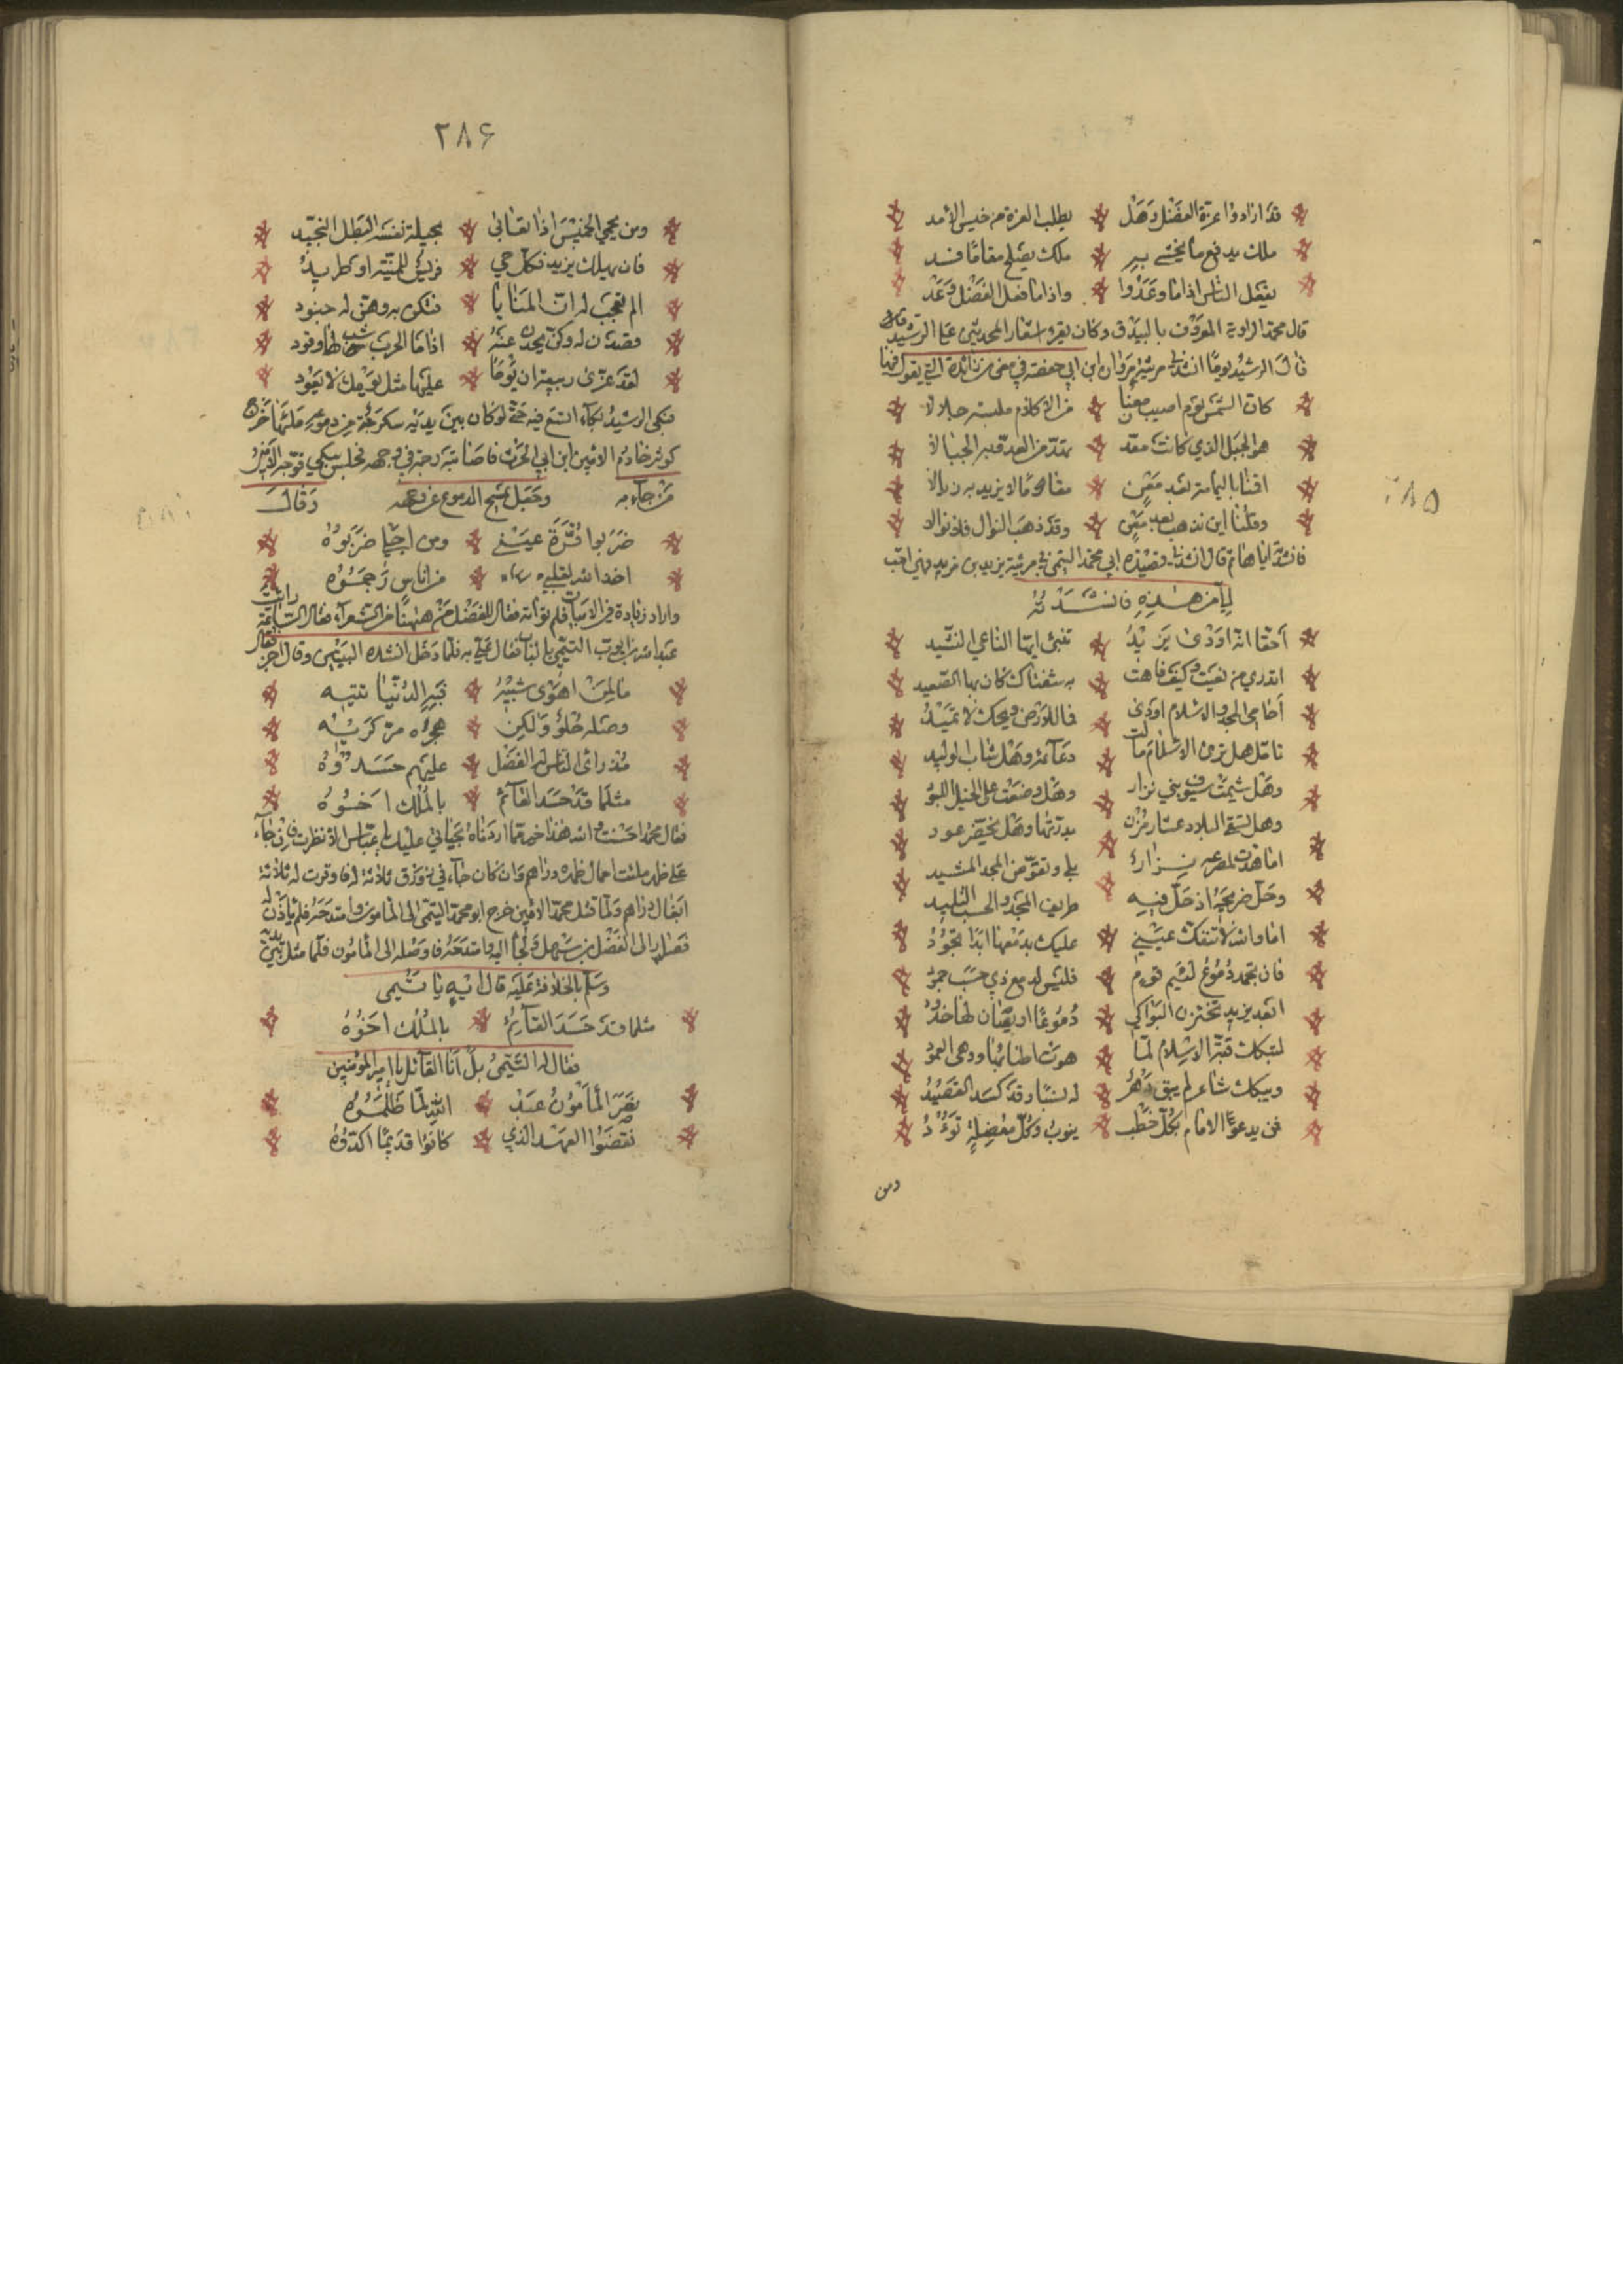 ٢٨۵
قد ارادوا عزة الفضل وهل يطلب العزة من خيس الأسد
ملك يدفع ما يخشى به ملك يصلح مقاما فسد
يفعل الناس اذا ما وعدوا واذا ما فعل الفضل وعد
قال محمد الراوية المعروف بالبيدق وكان يقرء اشعار المحدثين على الرشيد قال
قال الرشيد يوما انشدني مرثية مروان ابن ابي حفصة في معن بن زائدة التي يقول فيها
كان الشمس يوم اصيب معن من الاظلام ملبسة جلالا
هو الجبل الذي كانت معد تهد من العدو به الجبالا
اقمنا باليمامة بعد معن مقاما لا نريد به زيالا
وقلنا اين نذهب بعد معن وقد ذهب النوال فلا نوالا
فانشدته اياها ثم قال انشدني قصيدة ابي محمد التيمي في مرثية يزيد بن مزيد فهي احب
الي من هذه فانشدته
أحقا انه اودى يزيد تبين ايها الناعي المشيد
اتدري من نعيت وكيف فاهت به شفتاك كان بها الصعيد
أحامي المجد والاسلام اودى فما للأرض ويحك لا تميد
تامل هل ترى الاسلام مالت دعائمه وهل شاب الوليد
وهل شيمت سيوف بني نزار وهل وضعت على الخيل اللبود
وهل تسقي البلاد عشار مزن بدرتها وهل يخضر عود
اما هدت لمصرعه نزار بلى وتقوض المجد المشيد
وحل ضريحه اذ حل فيه طريف المجد والحسب التليد
اما والله لا تنفك عيني عليك بدمعها ابدا تجود
فان تجمد دموع لئيم قوم فليس لدمع ذي حسب جمود
ابعد يزيد تختزن البواكي دموعا او يصان لها خدود
لتبكك قبة الاسلام لما هوت اطنابها ووهى العمود
ويبكك شاعر لم يبق دهر له نشبا وقد كسد القصيد
فمن يدعو الامام بكل خطب ينوب وكل معضلة تؤد
ومن
٢٨۶
ومن يحمي الخميس اذا تعايى بحيلة نفسه البطل النجيد
فان يهلك يزيد فكل حي فريس للمنية او طريد
الم تعجب له ان المنايا فتكن به وهن له جنود
قصدن له وكن يحدن عنه اذا ما الحرب شب لها وقود
لقد عزى ربيعة ان يوما عليها مثل يومك لا يعود
فبكى الرشيد بكاء اتسع فيه حتى لو كان بين يديه سكرجة من دموعه ملئها خرج
كوثر خادم الامين ابن ابي الحرب فاصابته رجمة في وجهه فجلس يبكي فوجه الامين
من جاء به وجعل يمسح الدموع عن وجهه وقال
ضربوا قرة عيني ومن اجلي ضربوه
اخذ الله لقلبي من اناس رجمسوه
واراد زيادة في الابيات فلم تؤاته فقال للفضل من ههنا من الشعراء فقال الساعة رايت
عبد الله بن ايوب التيمي بالباب فقال علي به فلما دخل انشده البيتين وقال اجز فقال
ما لمن اهوى شبيه فبه الدنيا تتيه
وصله حلو ولكن هجره مر كريه
من راى الناس له الفضل عليهم حسدوه
مثلما قد حسد القائم بالملك اخوه
فقال محمد احسنت والله هذا خير مما اردناه بحياتي عليك يا عباس الا نظرت فان جاء
على ظهر ملئت احمال ظهره دراهم وان كان جاء في زورق ثلاثة فاوقرت له ثلاثة
ابغال دراهم ولما قتل محمد الامين خرج ابو محمد التيمي الى المامون وامتدحه فلم ياذن له
فصار الى الفضل بن سهل ولجأ اليه وامتدحه فاوصله الى المأمون فلما مثل بين يديه
وسلم بالخلافة عليه قال ايه يا تيمي
مثلما قد حسد القائم بالملك اخوه
فقال له التيمي بل انا القائل يا امير المؤمنين
نصر المأمون عبد الله لما ظلموه
نقضوا العهد الذي كانوا قديما اكدوه